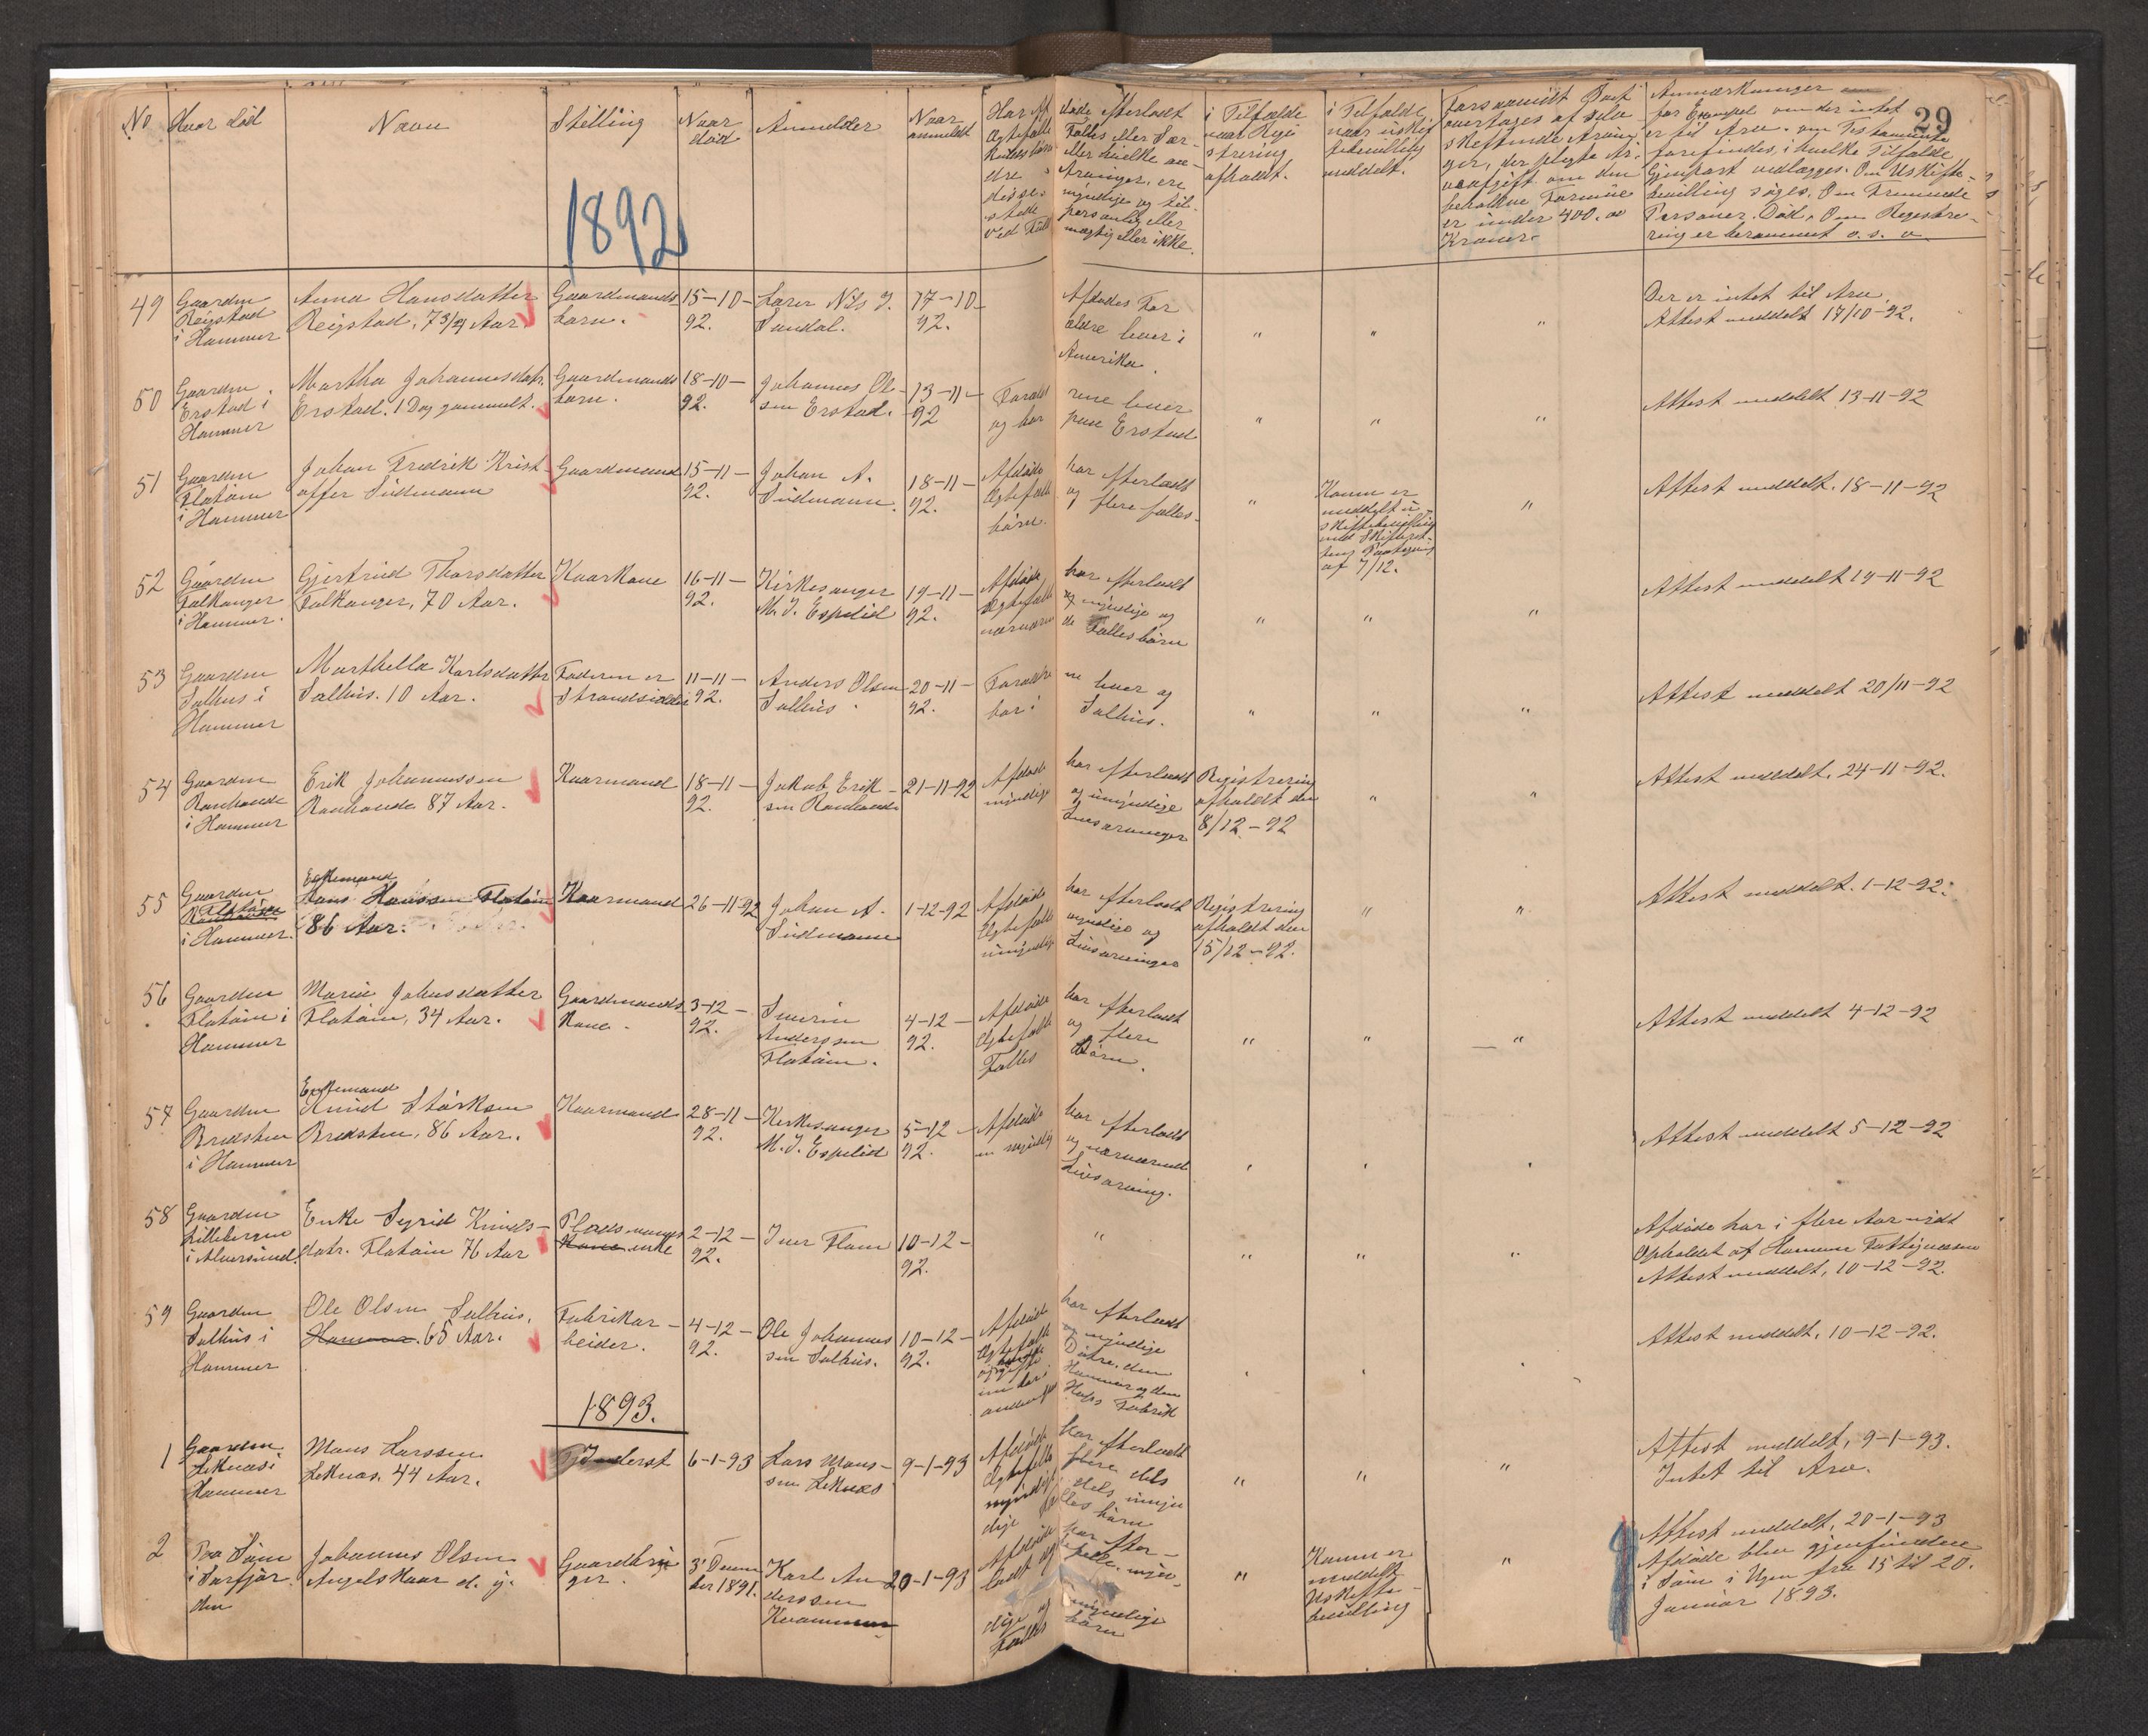 29
No
Hvor död
Navn
Stilling
Naar
död
Anmelder
Naar
anmeldt
Har Afdøde efterladt
Ægtefælle Fælles eller Sær-
kuldsbörn eller hvilke an-
dre Arvinger, ere
disse myndige og til-
stede personlig eller
ved Fuldmægtig eller ikke.
i Tilfælde
naar Regi
strering
afholdt.
i Tilfælde
naar uskif
tebevilling
meddelt.
Forsaavidt Boet
overtages af selv
skiftende Arvin
ger, der pligte Ar-
veafgift om den
beholdne Formue
er under 400.00
Kroner.
Anmærkninger
for Exempel om der intet
er til Arv. om Testamente
forefindes, i hvilke Tilfælde
Gjenpart vedlægges. Om Uskifte-
bevilling söges. Om Fremmede
Personer. Död. Om Registre-
ring er berammet o. s. v.
1892
49
Gaarden
Reigstad
i Hammer
Anna Hansdatter
Reigstad, 7 3/4 Aar
Gaardmands
barn.
15-10-
92.
Lærer Nils J.
Sandal.
17-10-
92.
Afdødes For
ældre lever i
Amerika.
" " "
Der er intet til Arv.
Attest meddelt 17/10-92.
50
Gaarden
Erstad i
Hammer
Martha Johannesdatr.
Erstad. 1 Dag gammelt.
Gaardmands
barn.
18-10-
92.
Johannes Ol-
sen Erstad.
13-11-
92
Forældrene lever
og bor paa Erstad
" " "
Attest meddelt 13-11-92
51
Gaarden
Flatöin
i Hammer
Johan Fredrik Krist
offer Sudmann
Gaardmand
15-11-
92.
Johan A.
Sudmann.
18-11-
92.
Afdøde har efterladt
Ægtefælle og flere fælles-
börn.
"
Konen er
meddelt u-
skiftebevilling
med Skifteret-
tens Paategning
af 7/12.
"
Attest meddelt. 18-11-92
52
Gaarden
Falkanger
i Hammer.
Gjertrud Thorsdatter
Falkanger, 70 Aar.
Kaarkone
16-11-
92.
Kirkesanger
M. J. Espelid
19-11-
92.
Afdøde har efterladt
Ægtefælle og myndige og
nærværende Fællesbörn
" " "
Attest meddelt 19-11-92
53
Gaarden
Salhus i
Hammer
Marthella Karlsdatter
Salhus. 10 Aar.
Faderen er
Strandsidder
11-11-
92.
Anders Olsen
Salhus
20-11-
92.
Forældrene lever og
bor i Salhus.
" " "
Attest meddelt 20/11-92
54
Gaarden
Ranhovde
i Hammer
Erik Johannessen
Ranhovde 87 Aar.
Kaarmand
18-11-
92.
Jakob Erik-
sen Ranhovde
21-11-92
Afdøde har efterladt
myndige og umyndige
Livsarvinger
Registrering
afholdt den
8/12-92
" "
Attest meddelt. 24-11-92.
55
Gaarden
Flatöin
i Hammer.
Enkemand
Hans Hansen Flatöin
86 Aar.
Kaarmand
26-11-92
Johan A.
Sudmann
1-12-92
Afdøde har efterladt
Ægtefælle myndige og
umyndige Livsarvinger
Registrering
afholdt den
15/12-92.
" "
Attest meddelt. 1-12-92.
56
Gaarden
Flatöin i
Hammer
Marie Johnsdatter
Flatöin, 34 Aar.
Gaardmands
Kone.
3-12-
92.
Severin
Anderssen
Flatöin.
4-12-
92.
Afdøde har efterladt
Ægtefælle og flere
Fælles Börn.
" " "
Attest meddelt 4-12-92
57
Gaarden
Bredsten
i Hammer
Enkemand
Knud Störksen
Bredsten, 86 Aar.
Kaarmand
28-11-
92.
Kirkesanger
M. J. Espelid
5-12-
92.
Afdøde har efterladt
en myndig og nærværende
Livsarving.
" " "
Attest meddelt 5-12-92
58
Gaarden
Lillebergen
i Alversund.
Enke Syrid Knuds-
datr. Flatöin 76 Aar
Pladsmands
Kone enke
2-12-
92.
Iver Flam
10-12-
92.
" " " "
Afdøde har i flere Aar nydt
Ophold af Hammer Fattigvæsen
Attest meddelt, 10-12-92.
59
Gaarden
Salhus i
Hammer
Ole Olsen Salhus,
Hammer. 65 Aar.
Fabrikar-
beider.
4-12-
92.
Ole Johannes
sen Salhus.
10-12-
92.
Afdøde har efterladt
Ægtefælle og myndige
Døtre, den
ene bor i Hammer og den
anden Hops Fabrik
" " "
Attest meddelt. 10-12-92.
1893.
1
Gaarden
Leknes i
Hammer
Mons Larssen
Leknes. 44 Aar.
Inderst
6-1-93
Lars Mons-
sen Leknes
9-1-93
Afdøde har efterladt
Ægtefælle flere dels
myndige dels umyn
dige Fællesbörn
" " "
Attest meddelt, 9-1-93.
Intet til Arv.
2
Paa Söen
i Sørfjor
den
Johannes Olsen
Angelskaar d. y.
Gaardbru
ger.
3' Decem
ber 1891.
Karl An
derssen
Kvammen
20-1-93
Afdøde har efter-
ladt Ægtefælle, myn-
dige og umyndige
Fælles börn
"
Konen er
meddelt
Uskifte-
bevilling
"
Attest meddelt, 20-1-93
Afdøde blev gjenfunden
i Söen i Ugen fra 15 til 20.
Januar 1893.